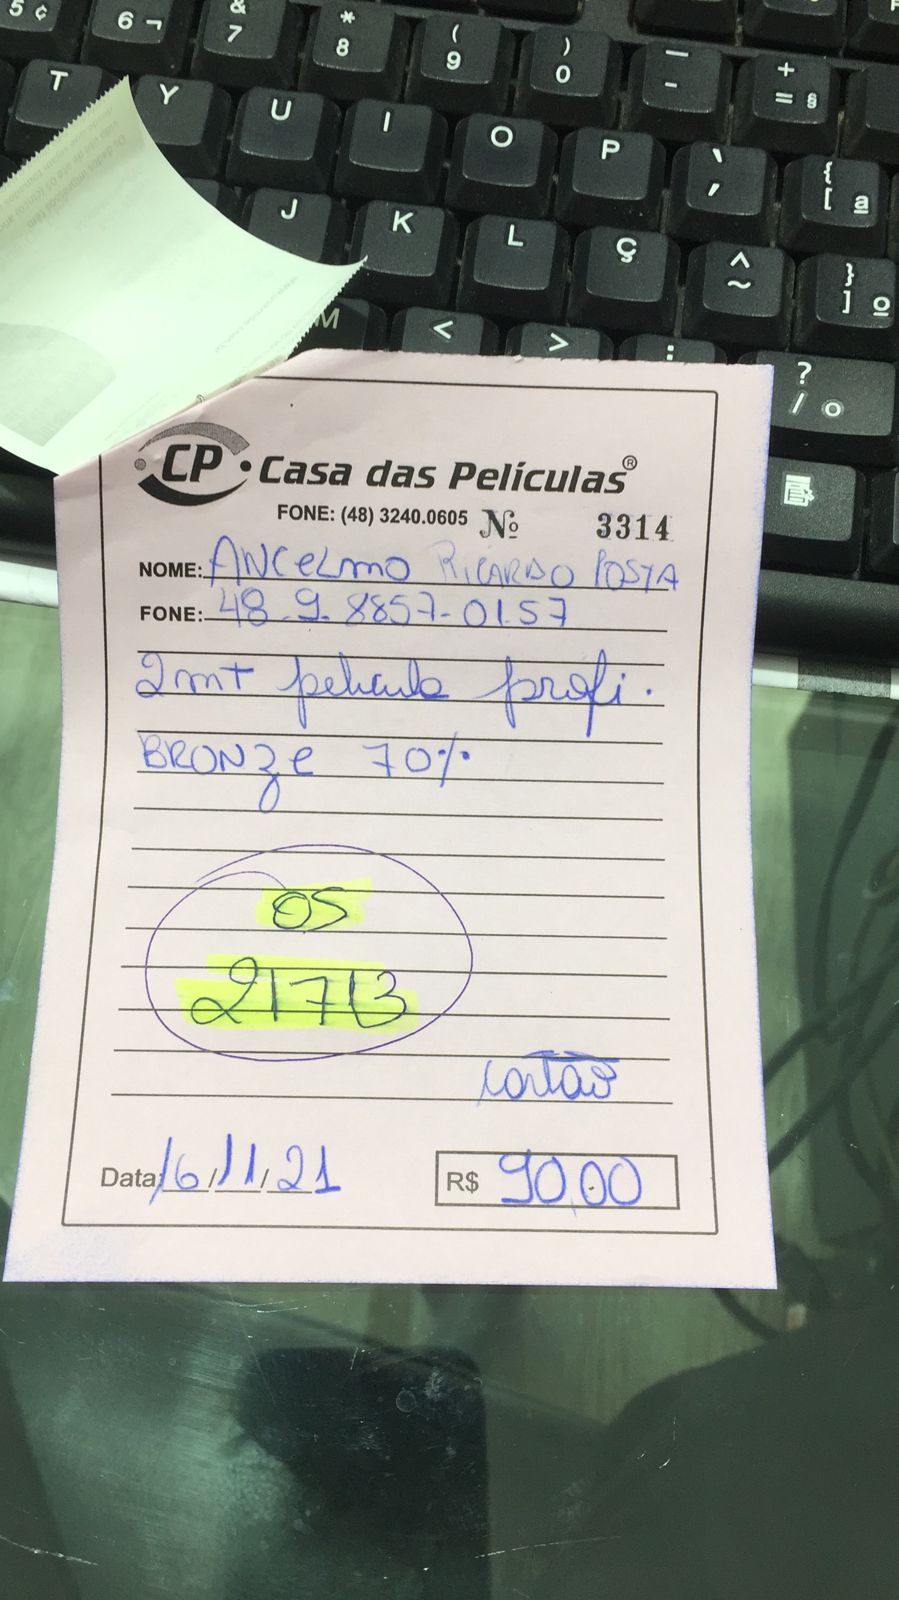 5 ¢ 6 ¬ & 7 * 8 ( 9 ) 0 — - + = §
T Y U I O P ` ´ { [ ª
J K L Ç ^ ~ } ] º
M < > : ? / °
CP Casa das Películas ®
FONE: (48) 3240.0605 Nº 3314
NOME: ANCELMO RICARDO POSTA
FONE: 48.9.8857-0157
2mt pelicula profi.
BRONZE 70%
OS
21713
cartão
Data: 16/11/21 R$ 90,00